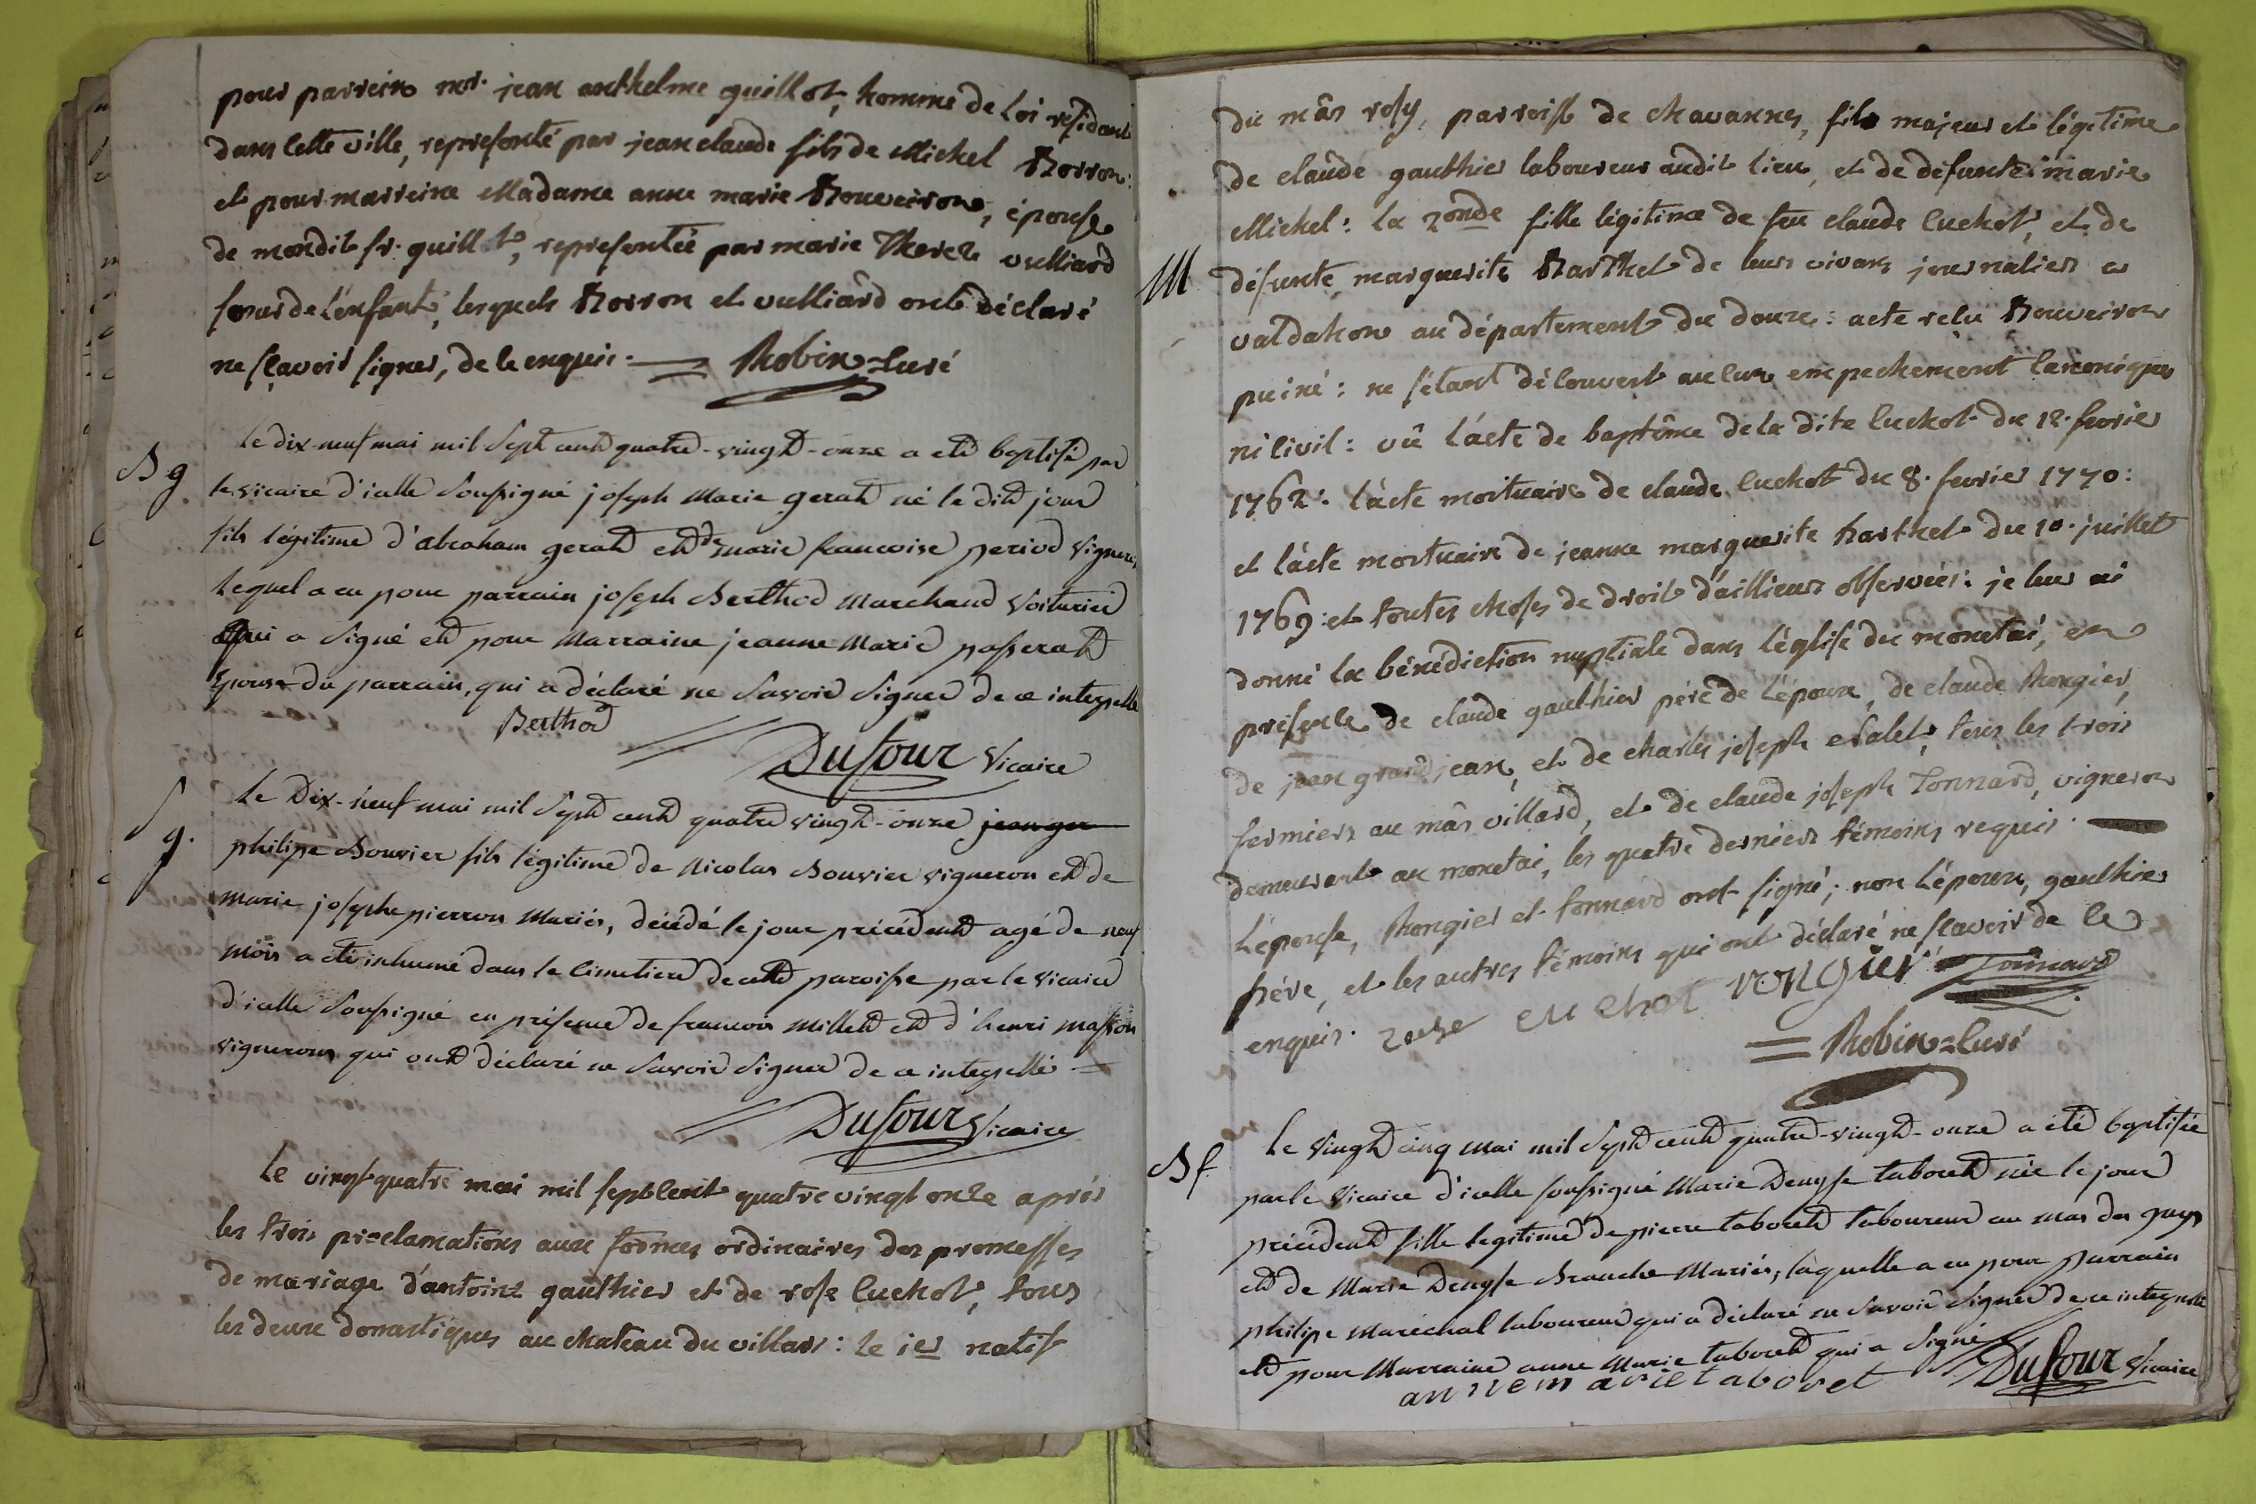 pour parrein mr. jean anthelme guillot, homme de loi résidant
dans cette ville, representé par jean claude fils de Michel Borron:
et pour marreine Madame anne marie Bouveiron, épouse
de mondit sr. guillot, representée par marie Therese vulliard
soeur de l'enfant, lesquels Borron et vulliard ont déclaré
ne sçavoir signer, de ce enquis. Robin curé
B g
Le dix-neuf mai mil sept cent quatre-vingt-onze a eté baptisé par
le vicaire d'icelle soussigné joseph Marie gerat né le dit jour
fils légitime d'abraham gerat et de marie francoise period vignerons
Lequel a eu pour parrain joseph Berthod Marchand voiturier
qui a signé et pour Marraine jeanne Marie passerat
Epouse du parrain, qui a déclaré ne savoir signer de ce interpellé
Berthod
Dufour Vicaire
S g.
Le Dix-neuf mai mil sept cent quatre vingt-onze jean ger
philipe Bouvier fils légitime de Nicolas Bouvier vigneron et de
marie josephe pierron Mariés, décédé le jour précédent agé de neuf
mois a eté inhumé dans le Cimetiere de cette paroisse par le vicaire
d'icelle soussigné en présence de francois Millet et d'henri masson
vignerons qui ont déclaré ne savoir signer de ce interpellés
Dufour Vicaire
Le vingt quatre mai mil septcent quatre vingt onze aprés
les trois proclamations aux formes ordinaires des promesses
de mariage d'antoine gauthier et de rose cuchot, tous
les deux domestiques au chateau du villars: le 1er natif
du mâs rosy, parroisse de chavannes, fils majeur et légitime
de claude gauthier laboureur audit lieu, et de défunte marie
Michel: la 2onde fille légitime de feu claude cuchot, et de
M
défunte marguerite Barthet de leur vivans journaliers a
valdahon au département du doux: acte relu Bouveiron
puiné: ne s'étant découvert aucun empechement canonique
ni civil: vû l'acte de baptême de la dite cuchot du 12. fevrier
1762: l'acte mortuaire de claude cuchot du 8. fevrier 1770:
et l'acte mortuaire de jeanne marguerite barthet du 10. juillet
1769: et toutes choses de droit d'aillieurs observées: je leur ai
donné la bénédiction nuptiale dans l'église du monetai, en
présence de claude gauthier pére de l'époux, de claude Rongier,
de jean grandjean, et de charles joseph chalet, tous les trois
fermiers au mâs villard, et de claude joseph Tonnard, vigneron
demeurant au monetai, les quatre derniers témoins requis.
L'épouse, Rongier et tonnard ont signé; non l'époux, gauthier
pére, et les autres témoins qui ont déclaré ne sçavoir de ce
enquis. roze cuchot rongier Tonnard
Robin curé
B f
Le vingt cinq mai mil sept cent quatre-vingt-onze a été baptisée
par le vicaire d'icelle soussigné Marie Denyse taboret née le jour
précédent fille legitime de pierre taboret laboureur au mas des guys
et de Marie Denyse Branche Mariés, laquelle a eu pour parrain
philipe Maréchal laboureur qui a déclaré ne savoir signer de ce interpellé
et pour Marraine anne Marie taboret qui a signé
anne marie taboret Dufour Vicaire